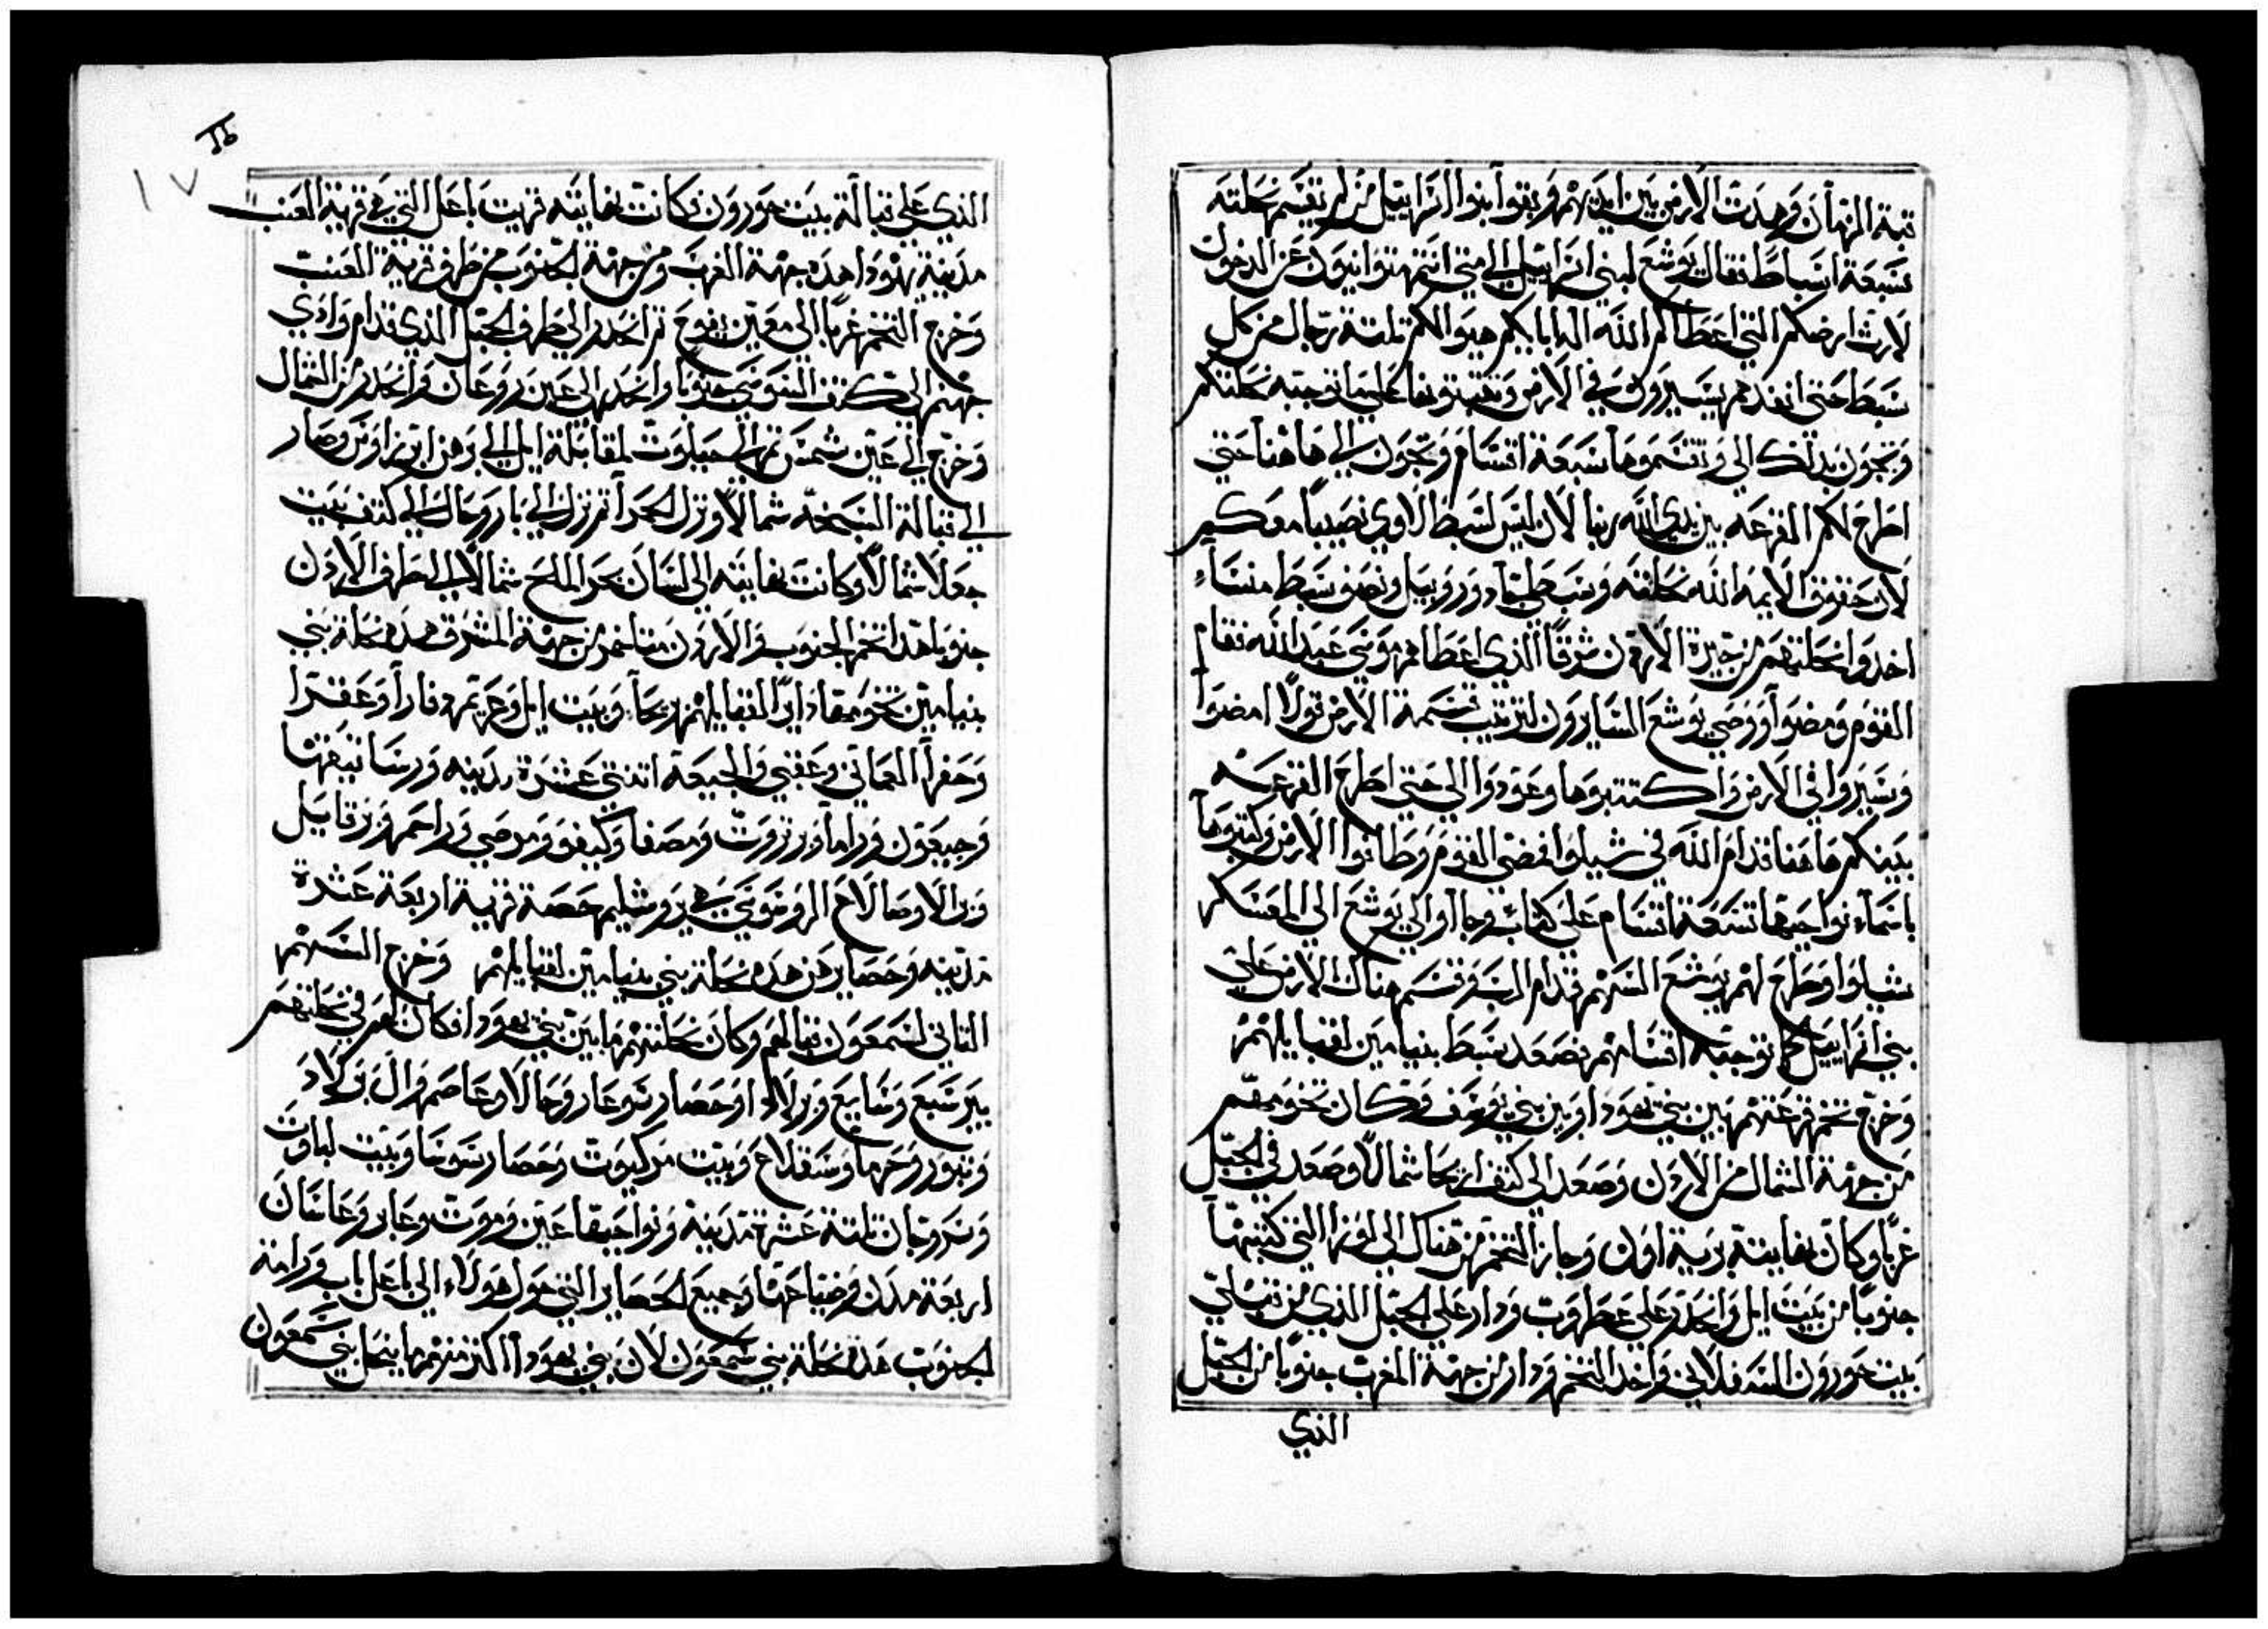 قبة الزمان وهدت الارض بين ايديهم وبقوا بنوا اسراييل من لم تقسم نحلته
سبعة اسباط فقال يوشع لبني اسراييل الي متي انتم تتوانيون عن الدخول
لارث ارضكم التي اعطاكم الله اله ابايكم هيوا لكم تلتة رجال من كل
سبط حتي انفدهم يسيرون في الارض ويكتبونها علي ما توجبه نحلتكم
وتجون بدلك الي وتقسموها سبعة اقسام وتجون الي هاهنا حتي
اطرح لكم القرعه بين يدي الله ربنا لان ليس لسبط لاوي نصيبا معكم
لان حقوق الايمه الله نحلته وسبط جاد وروبيل ونصف سبط منشاء
اخدوا نحلتهم من جيزة الاردن شرقا الذي اعطاهم موسي عبد الله فقام
القوم ومضوا ووصي يوشع السايرون لترتيب قسمة الارض قولا امضوا
وسيروا في الارض واكتتبوها وعودوا الي حتي اطرح القرعه
بينكم هاهنا قدام الله في شيلوا فمضي القوم وطافوا الارض وكتبوها
باسماء نواحيها تسعة اقسام علي كتاب وجاآوا الي يوشع الي المعسكر
بشيلوا وطرح لهم يوشع السهم قدام الرب وقسم هناك الارض علي
بني اسراييل كما توجبه اقسامهم فصعد سبط بنيامين لقبايلهم
وخرج تخم قرعتهم بين بني يهودا وبين بني يوسف وكان تخومهم
من جهة الشمال من الاردن وصعد الي كتف اريحا شمالا وصعد في الجبل
غربا وكان نهايته برية اون وجاز التخم من هناك الي لوزا التي كتبتها
جنوبا من بيت ايل وانحدر علي عطروت ودار علي الجبل الذي من قبلي
بيت حورون السفلاني واخد التخم ودار من جهة المغرب جنوبا من الجبل
الذي
١٧
الذي علي قبالة بيت حورون فكانت نهايته قريت باعل التي هي قرية العنب
مدينة يهودا هده جهة الغرب ومن جهة الجنوب من طرف قرية العنب
وخرج التخم غربا الي معين يفوح تم انحدر الي طرف الجبل الذي قدام وادي
جهنم الي كتف اليبوسي جنوبا وانحدر الي عين روغان وانحدر من الشمال
وخرج الي عين شمس تم الي جيلوت لمقابلة ايل الي بوهن ابن راوبين وصار
الي قبالة السبخة شمالا ونزل الحدر تم نزل الي كتف بيت
جعلا شمالا وكانت نهايته الي لسان بحر الملح شمالا الي طرف الاردن
جنوبا هدا تخم الجنوب والاردن متاخم من جهة المشرق هده نحلة بني
بنيامين تخومها دايرا لقبايلهم اريحا وبيت ايل وعقترا
وحفرا العماني وعفني والجبعة اتنتي عشرة مدينه ورساتيقها
وجبعون وراما وبيروت ومصفا وكيفو ومرصي وراحم ويرقاييل
وترالا وصالاع الروموسي هي يروشليم حصة قرية اربعة عشرة
مدينه وحصايرهن هده نحلة بني بنيامين لقبايلهم وخرج السهم
التاني لشمعون قبالهم وكان نحلتهم ما بين بني يهودا فكان لهم في نحلتهم
بير سبع وشابع ومولاد وحصار شوعار وحالا وعاصم والتولاد
وتبور وحرما وسقلاع وبيت مركبوت وحصار سوسا وبيت لباوت
وشروحان تلتة عشرة مدينة ونواحيها عين ورموت وعابر وعاشان
اربعة مدن وضياعها وجميع الحصاير التي حول هولاء الي باعل باب ورامة
الجنوب هده نحلة بني شمعون لان بني يهودا اكتر منهم ما ينحل بني شمعون